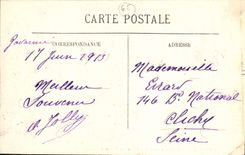 65
CARTE POSTALE
CORRESPONDANCE
ADRESSE
17 Juin 1913
Meilleur
Souvenir
Mademoiselle
Evard
146 Bd National
Clichy
Seine